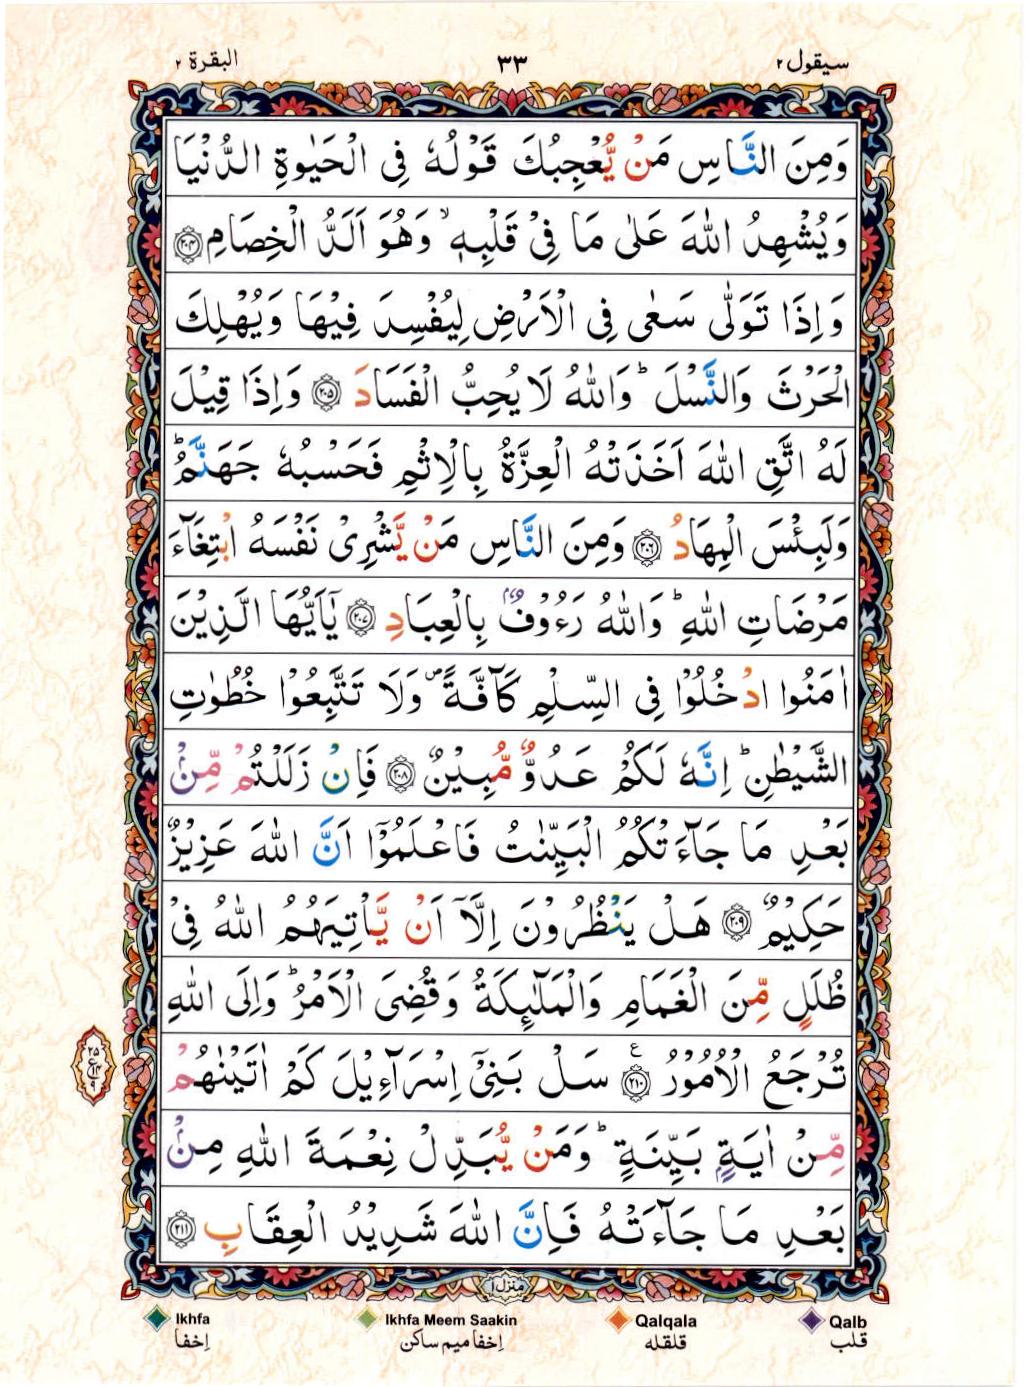 سيقول ٢ ٣٣ البقرة ٢
وَمِنَ النَّاسِ مَنْ يُّعْجِبُكَ قَوْلُهٗ فِی الْحَيٰوةِ الدُّنْيَا
وَيُشْهِدُ اللّٰهَ عَلٰی مَا فِیْ قَلْبِهٖ ۙ وَهُوَ اَلَدُّ الْخِصَامِ ۝٢٠٤
وَاِذَا تَوَلّٰی سَعٰی فِی الْاَرْضِ لِيُفْسِدَ فِيْهَا وَيُهْلِكَ
الْحَرْثَ وَالنَّسْلَ ؕ وَاللّٰهُ لَا يُحِبُّ الْفَسَادَ ۝٢٠٥ وَاِذَا قِيْلَ
لَهُ اتَّقِ اللّٰهَ اَخَذَتْهُ الْعِزَّةُ بِالْاِثْمِ فَحَسْبُهٗ جَهَنَّمُ ؕ
وَلَبِئْسَ الْمِهَادُ ۝٢٠٦ وَمِنَ النَّاسِ مَنْ يَّشْرِیْ نَفْسَهُ ابْتِغَآءَ
مَرْضَاتِ اللّٰهِ ؕ وَاللّٰهُ رَءُوْفٌۢ بِالْعِبَادِ ۝٢٠٧ يٰۤاَيُّهَا الَّذِيْنَ
اٰمَنُوا ادْخُلُوْا فِی السِّلْمِ كَآفَّةً ۪ وَلَا تَتَّبِعُوْا خُطُوٰتِ
الشَّيْطٰنِ ؕ اِنَّهٗ لَكُمْ عَدُوٌّ مُّبِيْنٌ ۝٢٠٨ فَاِنْ زَلَلْتُمْ مِّنْۢ
بَعْدِ مَا جَآءَتْكُمُ الْبَيِّنٰتُ فَاعْلَمُوْۤا اَنَّ اللّٰهَ عَزِيْزٌ
حَكِيْمٌ ۝٢٠٩ هَلْ يَنْظُرُوْنَ اِلَّاۤ اَنْ يَّاْتِيَهُمُ اللّٰهُ فِیْ
ظُلَلٍ مِّنَ الْغَمَامِ وَالْمَلٰٓئِكَةُ وَقُضِیَ الْاَمْرُ ؕ وَاِلَی اللّٰهِ
تُرْجَعُ الْاُمُوْرُ ۝٢١٠ ع سَلْ بَنِیْۤ اِسْرَآءِيْلَ كَمْ اٰتَيْنٰهُمْ
٢٥ ع ١٤ ٩
مِّنْ اٰيَةٍۭ بَيِّنَةٍ ؕ وَمَنْ يُّبَدِّلْ نِعْمَةَ اللّٰهِ مِنْۢ
بَعْدِ مَا جَآءَتْهُ فَاِنَّ اللّٰهَ شَدِيْدُ الْعِقَابِ ۝٢١١
منزل ١
Ikhfa Ikhfa Meem Saakin Qalqala Qalb
اِخفا اِخفا میم ساکن قلقله قلب